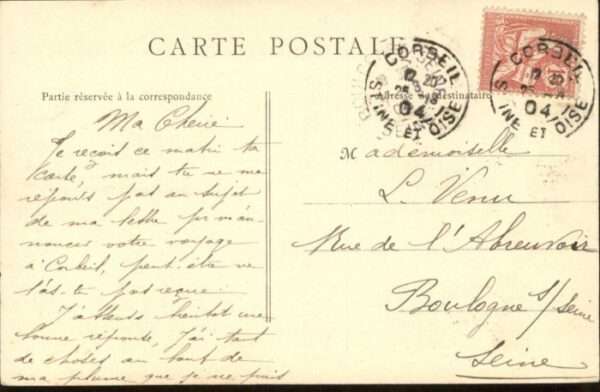 CARTE POSTALE
Partie réservée à la correspondance
Adresse du destinataire
CORBEIL
17 20
25
04
SEINE ET OISE
CORBEIL
17 20
25
04
SEINE ET OISE
Ma Chérie
Je reçois ce matin ta
carte, mais tu ne me
réponds pas au sujet
de ma lettre
voyage
à Corbeil, peut être ne
l'as tu pas reçue.
J'attends bientôt une
bonne réponse, j'ai tant
de choses au bout de
ma plume que je ne puis
Mademoiselle
L. Venu
Rue de l'Abreuvoir
Boulogne s/seine
Seine